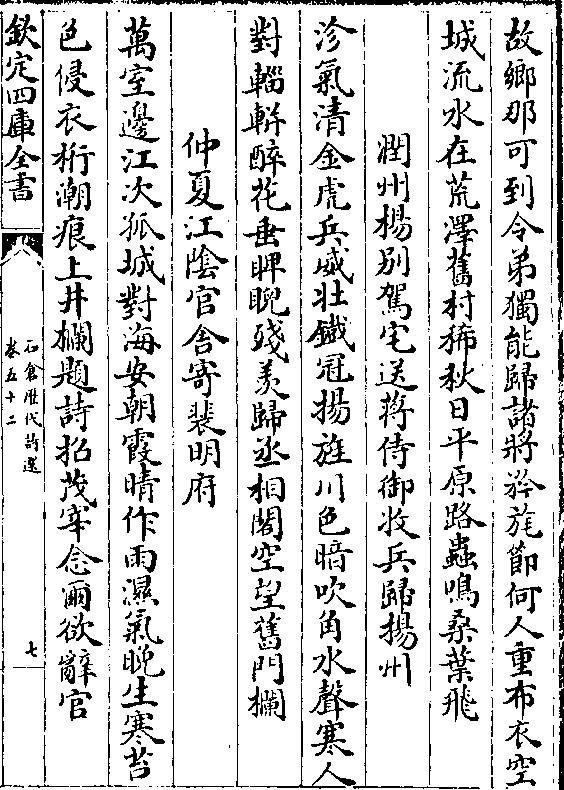 故鄉那可到令弟獨能歸諸將矜旄節何人重布衣空
城流水在荒澤舊村稀秋日平原路蟲鳴桑葉飛
潤州楊別駕宅送蔣侍御收兵歸揚州
沴氣清金虎兵威壯鐵冠揚旌川色暗吹角水聲寒人
對輜軿醉花垂睥睨殘羨歸丞相閣空望舊門欄
仲夏江隂官舍寄裴明府
萬室邊江次孤城對海安朝霞晴作雨濕氣晚生寒苔
色侵衣桁潮痕上井欄題詩招茂宰念爾欲辭官
欽定四庫全書
石倉歷代詩選
卷五十二
七